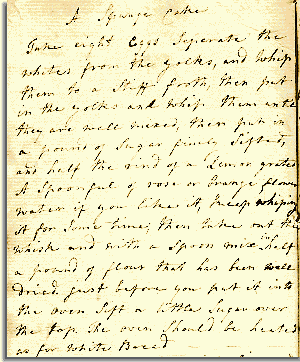 A Spunge Cake
Take eight Eggs Seperate the
whites from the yolks, and whip
them to a Stiff froth, then put
in the yolks and whip them untill
they are well mixed, then put in
a pound of Sugar finely Sifted,
and half the rind of a Lemon grated
A Spoonful of rose or Orange flower
water if you like it, keep whiping
it for some time; then take out the
whisk and with a Spoon mix in half
a pound of flour that has been well
dried just before you put it into
the oven Sift a little Sugar over
the top. The oven Should be heated
as for White Bread